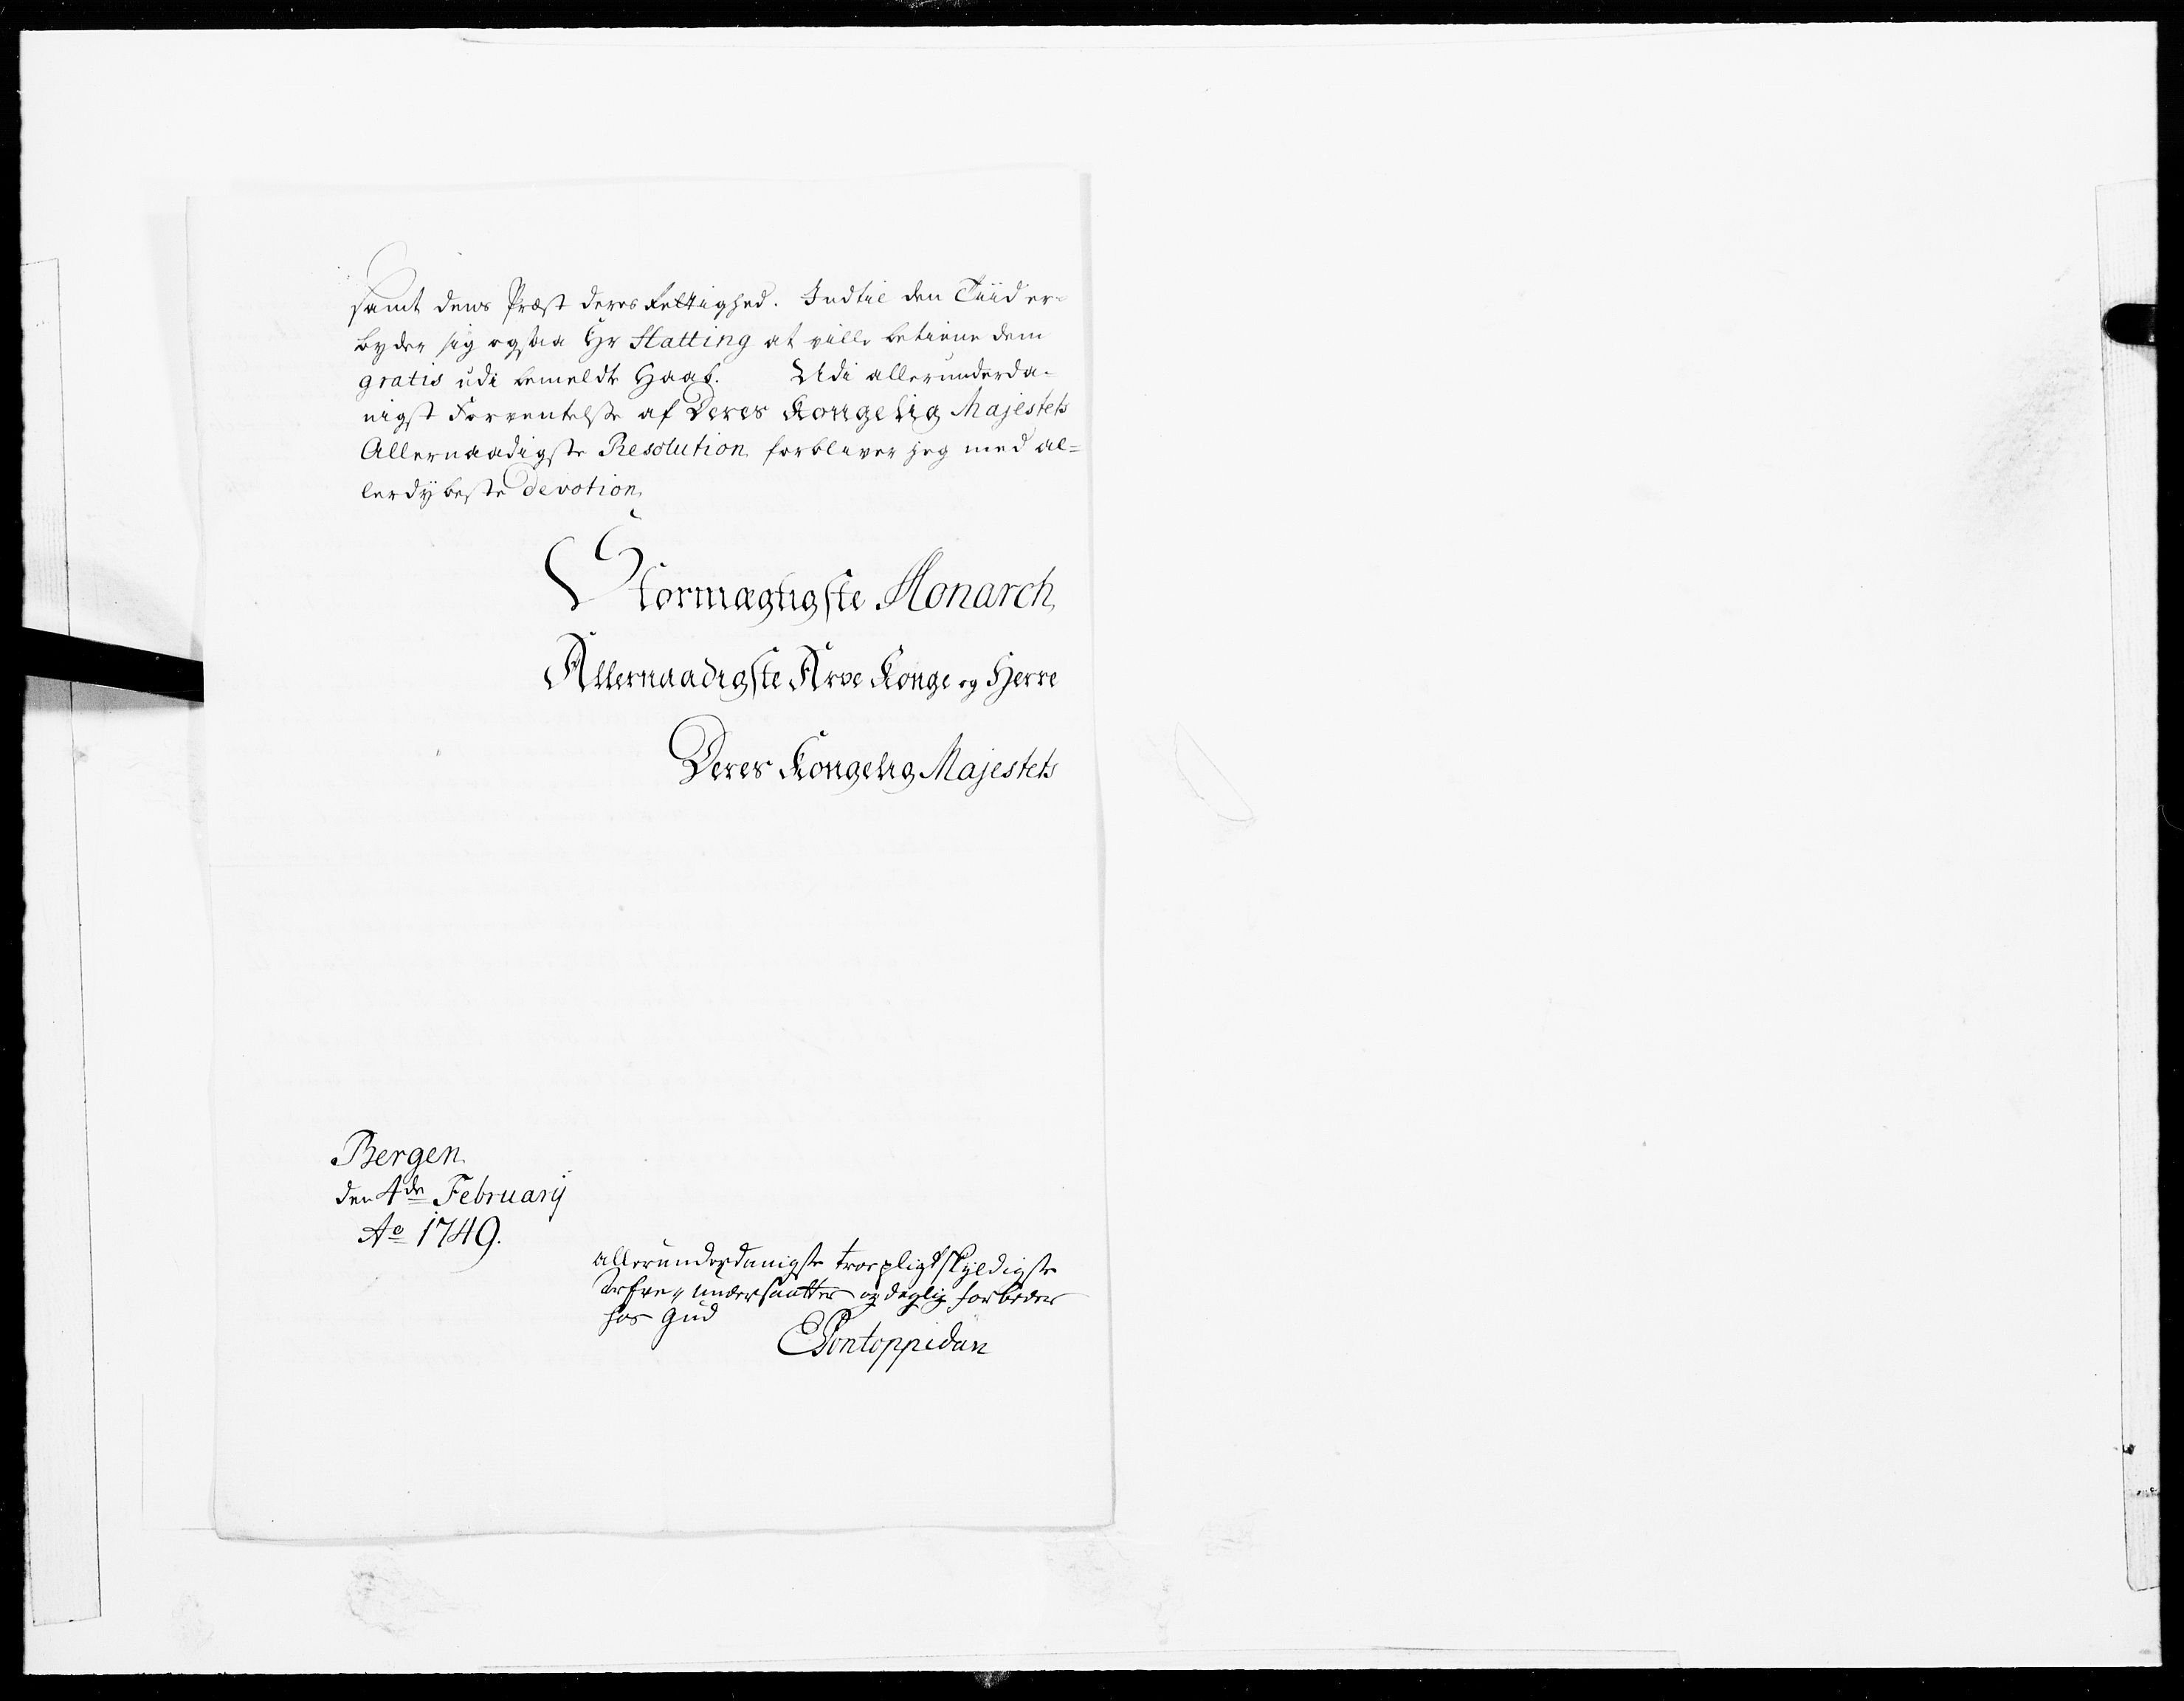 samt dens Præst deres Rettighed. Indtil den Tiid er-
byder sig ogsaa Hr Statting at ville betiene dem
gratis udi bemeldte Haab. Udi allerunderda-
nigst Forventelse af Deres Kongelig Majestets
Allernaadigste Resolution forbliver jeg med al=
lerdybeste devotion
Stormægtigste Monarch
Allernaadigste Arve Konge og Herre
Deres Kongelig Majestets
Bergen
den 4de Februarij
Ao 1749.
allerunderdanigste troepligtskyldigste
undersaatter og daglig forbeder
hos Gud
EPontoppidan